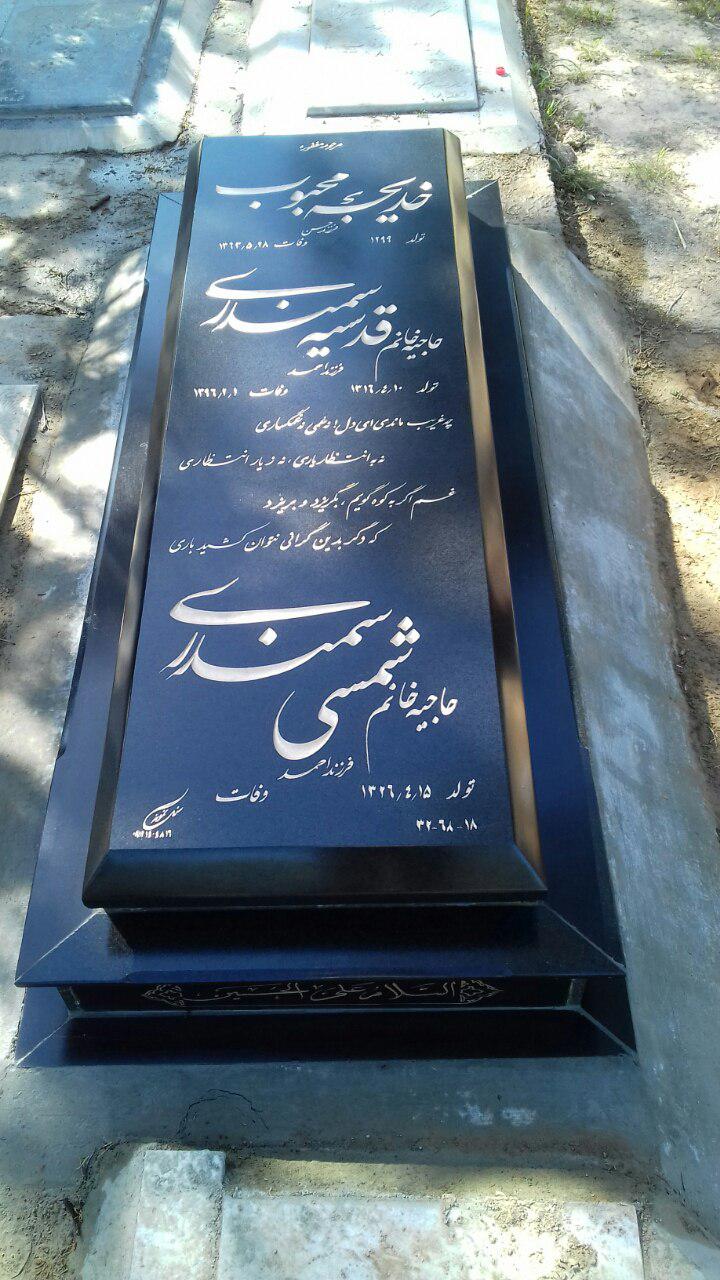 مرحومه مغفوره
خدیجه محبوب
فرزند حسن
تولد ۱۲۹۹ وفات ۱۳۶۳٫۵٫۲۸
حاجیه خانم قدسیه سمندری
فرزند احمد
تولد ۱۳۱۶٫٤٫۱۰ وفات ۱۳۹۶٫۲٫۱
چه غریب ماندی ای دل! نه غمی نه غمگساری
نه به انتظار یاری، نه ز یار انتظاری
غم اگر به کوه گویم، بگریزد و بریزد
که دگر بدین گرانی نتوان کشید باری
حاجیه خانم شمسی سمندری
فرزند احمد
تولد ۱۳۲۶٫٤٫۱۵ وفات
۳۲-۶۸-۱۸
السلام علی الحسین